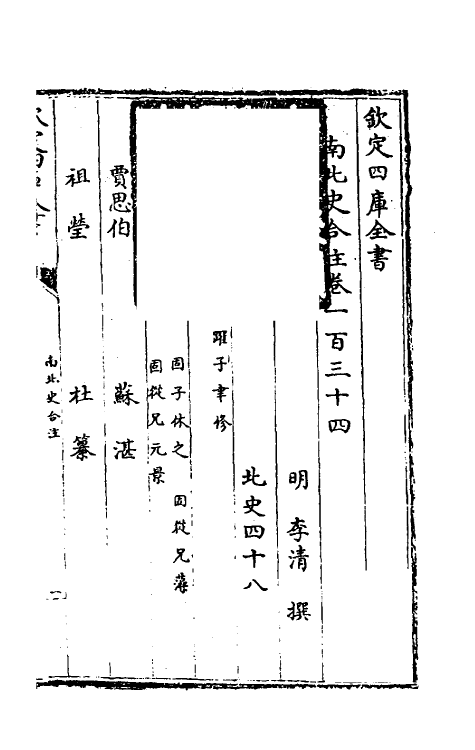 欽定四庫全書
南北史合註卷一百三十四
明 李清 撰
北史四十八
躍子聿修
固子休之 固從兄藻
固從兄元景
賈思伯 蘇湛
祖瑩 杜纂
南北史合注